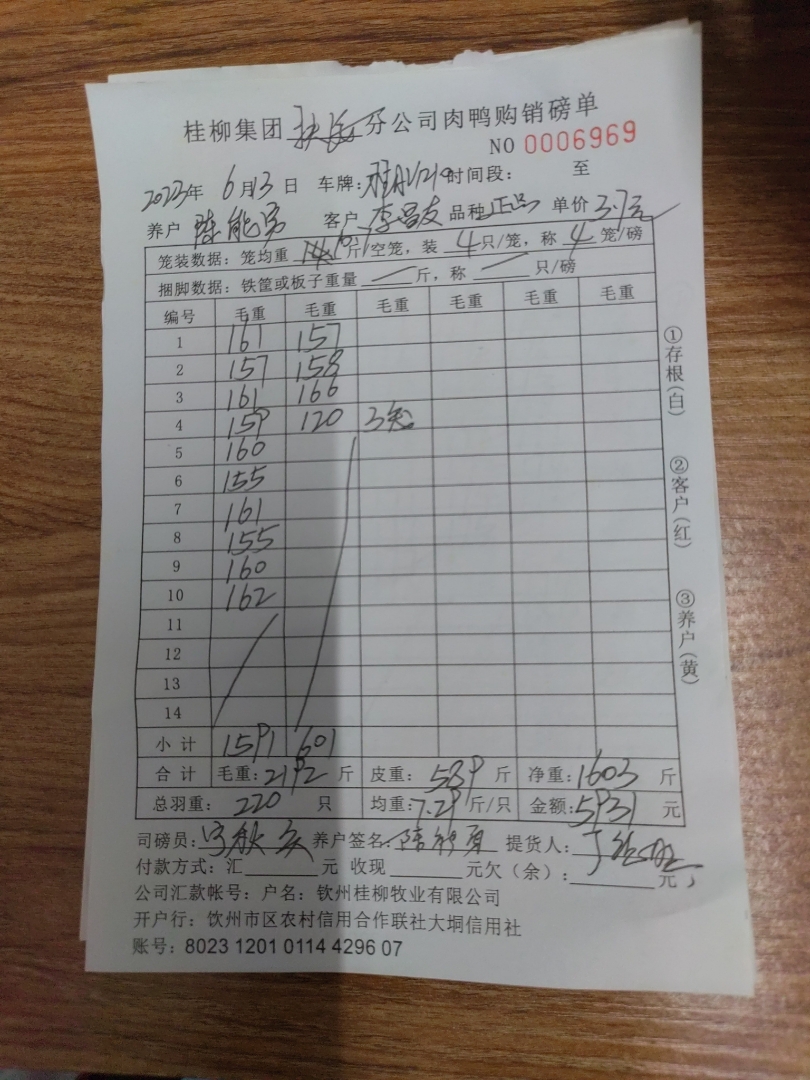 桂柳集团扶绥分公司肉鸭购销磅单
NO 0006969
2023年 6月3日 车牌: 时间段: 至
养户 陈能勇 客户 李昌友 品种 正品 单价 3.7元
笼装数据: 笼均重 斤/空笼, 装 4 只/笼, 称 4 笼/磅
捆脚数据: 铁筐或板子重量 斤, 称 只/磅
编号 毛重 毛重 毛重 毛重 毛重 毛重
1 161 157
2 157 158
3 161 166
4 159 120 3笼
5 160
6 155
7 161
8 155
9 160
10 162
11
12
13
14
小计 1591 601
合计 毛重: 2192 斤 皮重: 589 斤 净重: 1603 斤
总羽重: 220 只 均重: 7.29 斤/只 金额: 5931 元
司磅员: 养户签名: 陈能勇 提货人:
付款方式: 汇 元 收现 元欠(余): 元
公司汇款帐号: 户名: 钦州桂柳牧业有限公司
开户行: 饮州市区农村信用合作联社大垌信用社
账号: 8023 1201 0114 4296 07
①存根(白)
②客户(红)
③养户(黄)